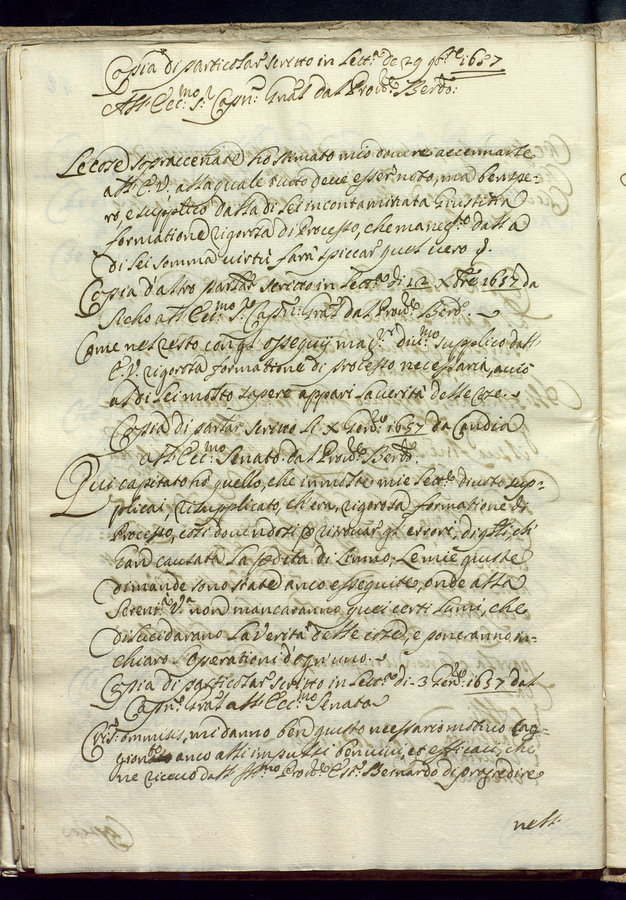 Copia di particolar scritto in Lett.ᵃ de 29 9bre 1657
All' Ecc.mo S.r Cap.n Gnal dal Prov.r Berdo:
Le cose sopraccenate ho stimato mio dovere accennarle
all' E.V. alla quale tutto deve esser noto, ma ben spe-
ro, e supplico dalla di Lei incontaminata Giustitia
formatione rigorosa di Processo, che dalla
di Lei somma virtù farà spiccar quel vero
Copia d'altro partar scritto in Lett.ᵃ di 12 Xbre 1657 da
all' Ecc.mo S.r Cap.n Gnal dal Prov.r Berdo.
Come nel resto con gl' ossequij supplico dall'
E.V. rigorosa formatione di processo necessaria,
di Lei molto sapere appari la verità delle cose.
Copia di partar scritto li X Genro 1657 da Candia
all' Ecc.mo Senato dal Prov.r Berdo.
Qui capitato ho quello, che in molte mie Lett.e di voto sup-
plicai, risupplicato, ch'era, rigorosa formatione di
Processo, così dovendosi ritrovar gl' errori, di q.lli, ch'
han causata la perdita di Lemno. Le mie giuste
dimande sono state anco essequite, onde alla
Seren.tà V.ra non mancaranno quei certi lumi, che
dilucidarano la Verità delle cose, e poneranno in
chiaro l'operationi d'ogn'uno.
Copia di particolar scritto in Lett.ᵃ di 3 Genro 1657 dal
Cap.n Gnal all' Ecc.mo Senato
omissis, mi danno ben giusto necessario motivo
anco alli impulsi benivi, et efficaci, che
ne ricevo dall' Ill.mo Prov.r Est.r Bernardo di procedire
nell: